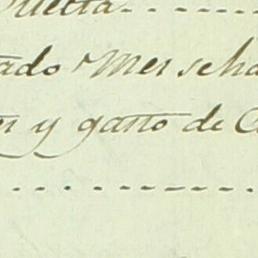 uelta
ado Mes se ha
y gasto de C